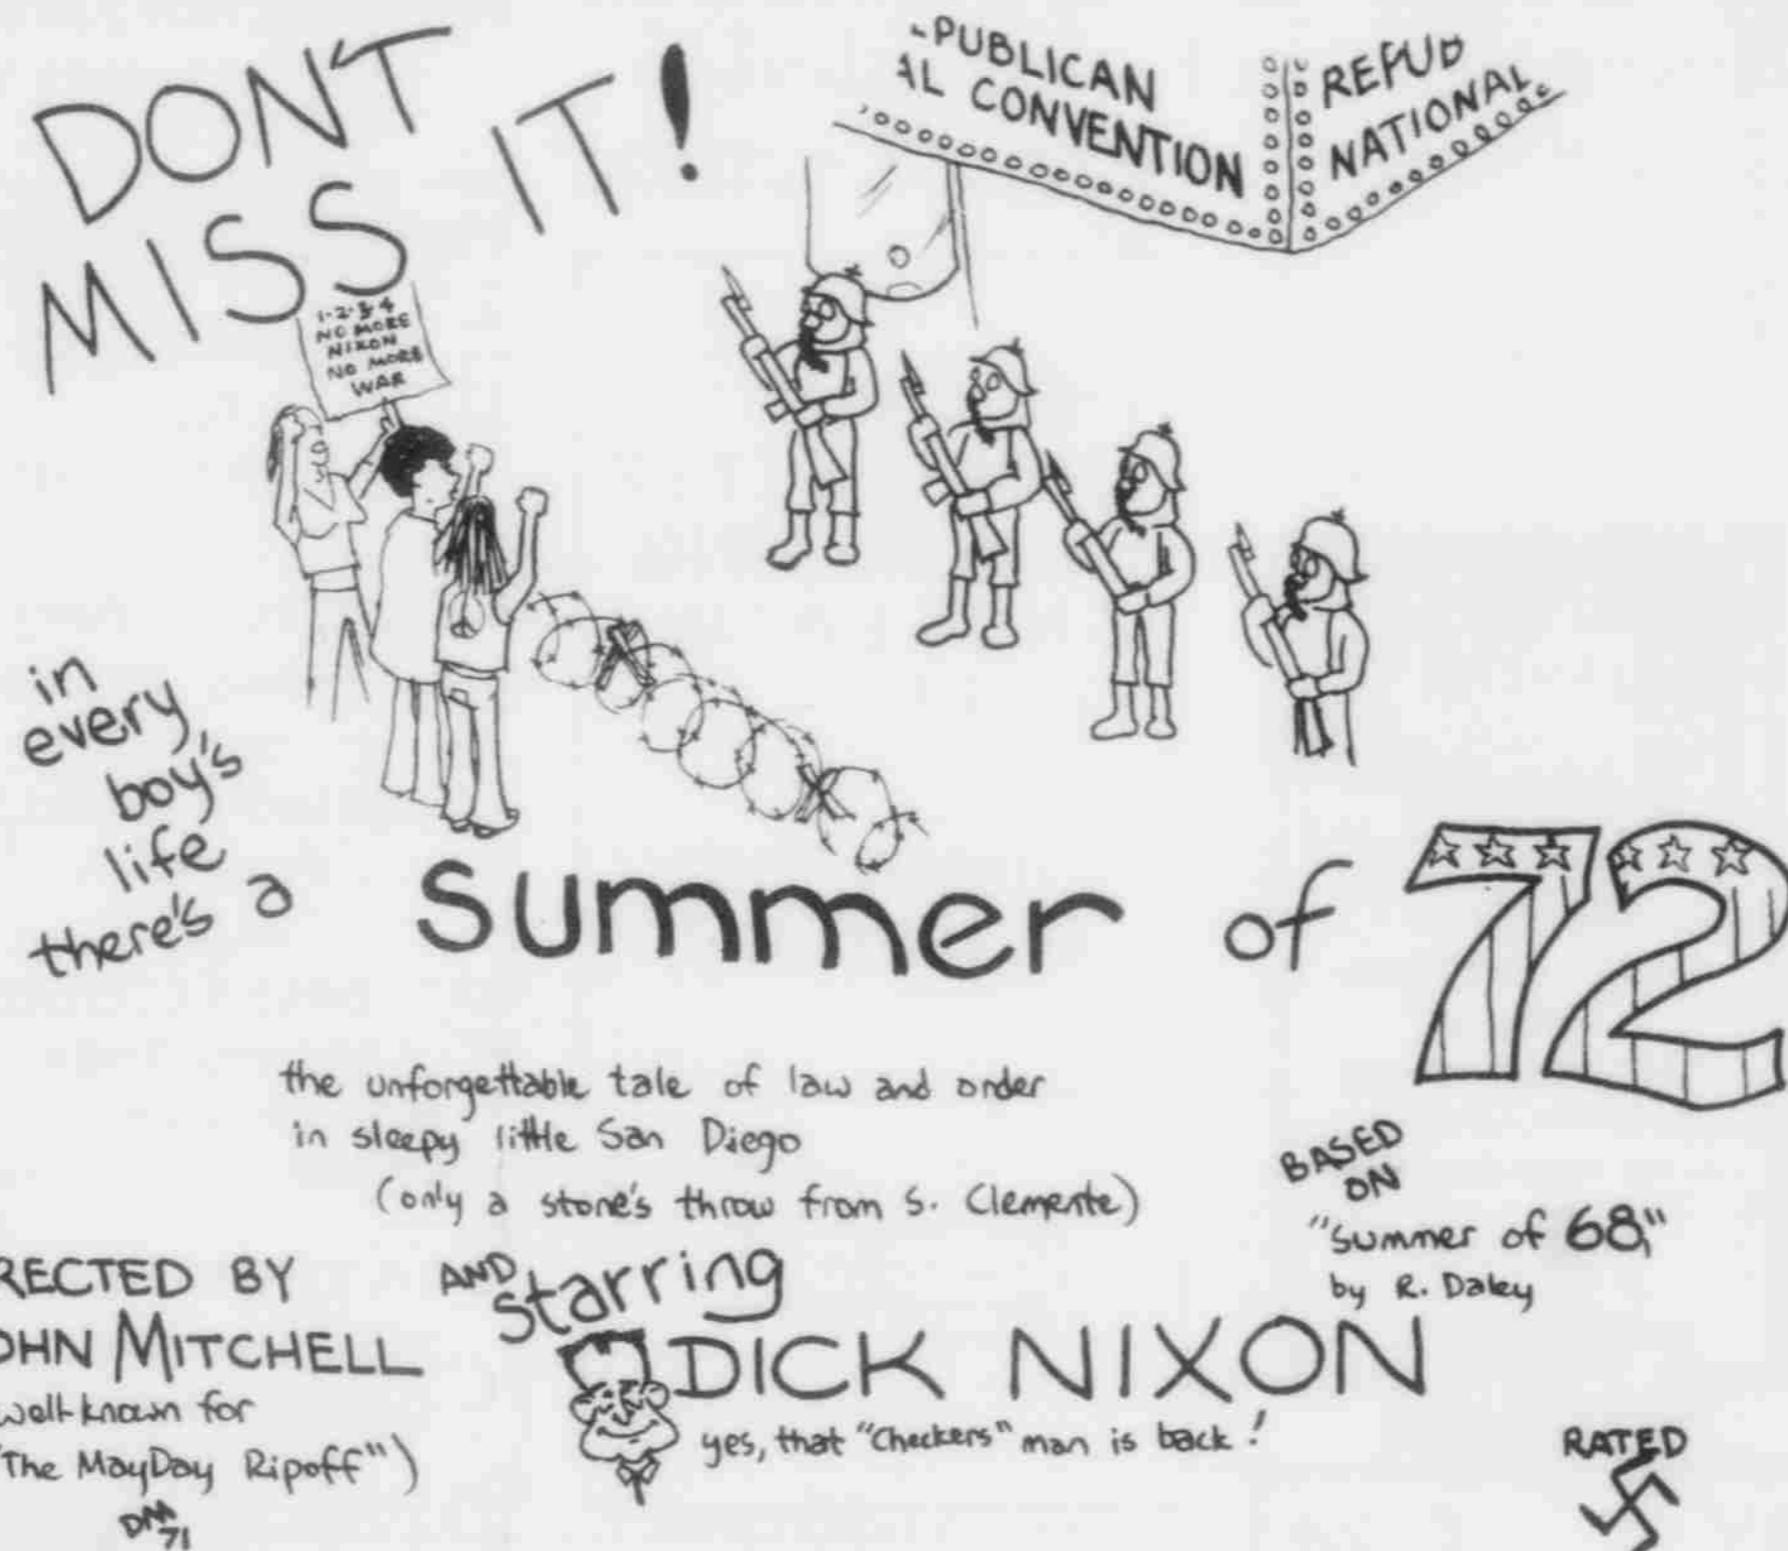 DON'T
MISS IT!
PUBLICAN
AL CONVENTION
REPUB
NATIONAL
1-2-3-4
NO MORE
NIXON
NO MORE
WAR
in
every
boy's
life
there's a
summer of 72
the unforgettable tale of law and order
in sleepy little San Diego
(only a stone's throw from S. Clemente)
BASED
ON
"Summer of 68,"
by R. Daley
RECTED BY
OHN MITCHELL
well-known for
"The MayDay Ripoff")
DM
71
AND
Starring
DICK NIXON
yes, that "Checkers" man is back!
RATED